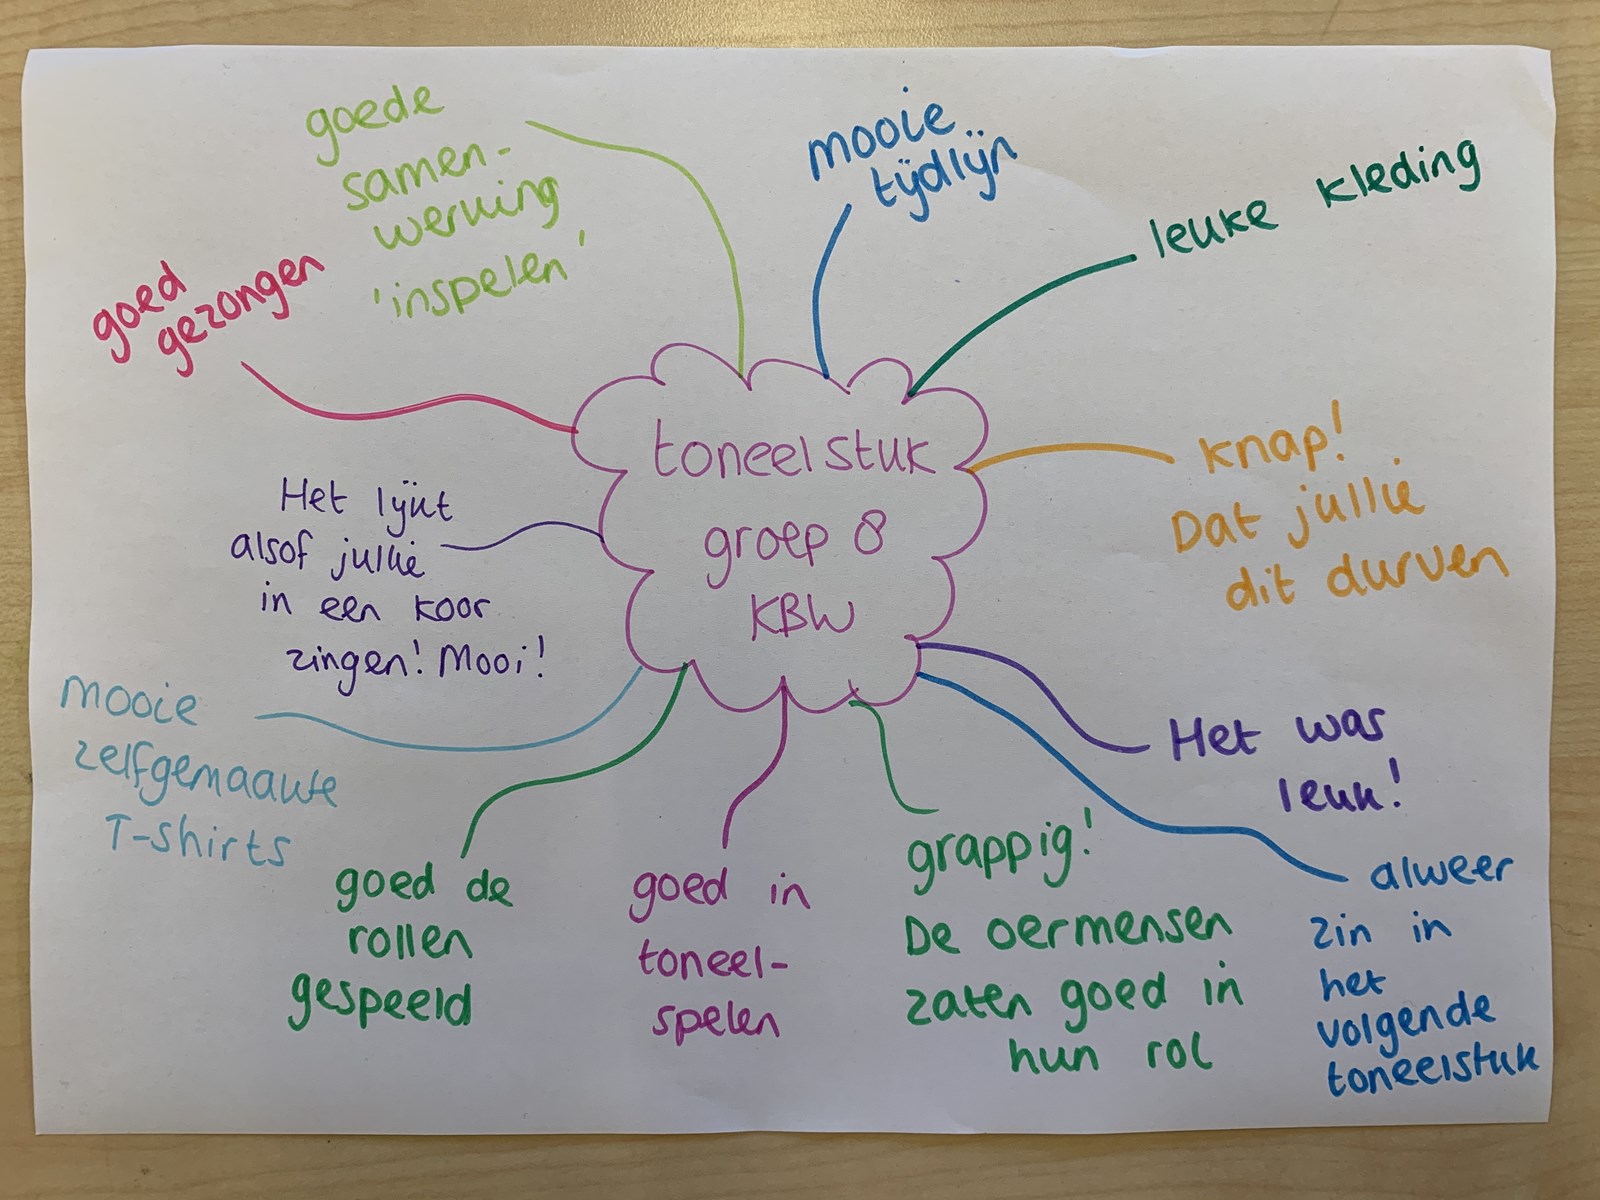 goede
samen-
werking
'inspelen'
mooie
tijdlijn
leuke kleding
goed
gezongen
toneelstuk
groep 8
KBW
knap!
Dat jullie
dit durven
Het lijkt
alsof jullie
in een koor
zingen! Mooi!
mooie
zelfgemaakte
T-shirts
Het was
leuk!
goed de
rollen
gespeeld
goed in
toneel-
spelen
grappig!
De oermensen
zaten goed in
hun rol
alweer
zin in
het
volgende
toneelstuk